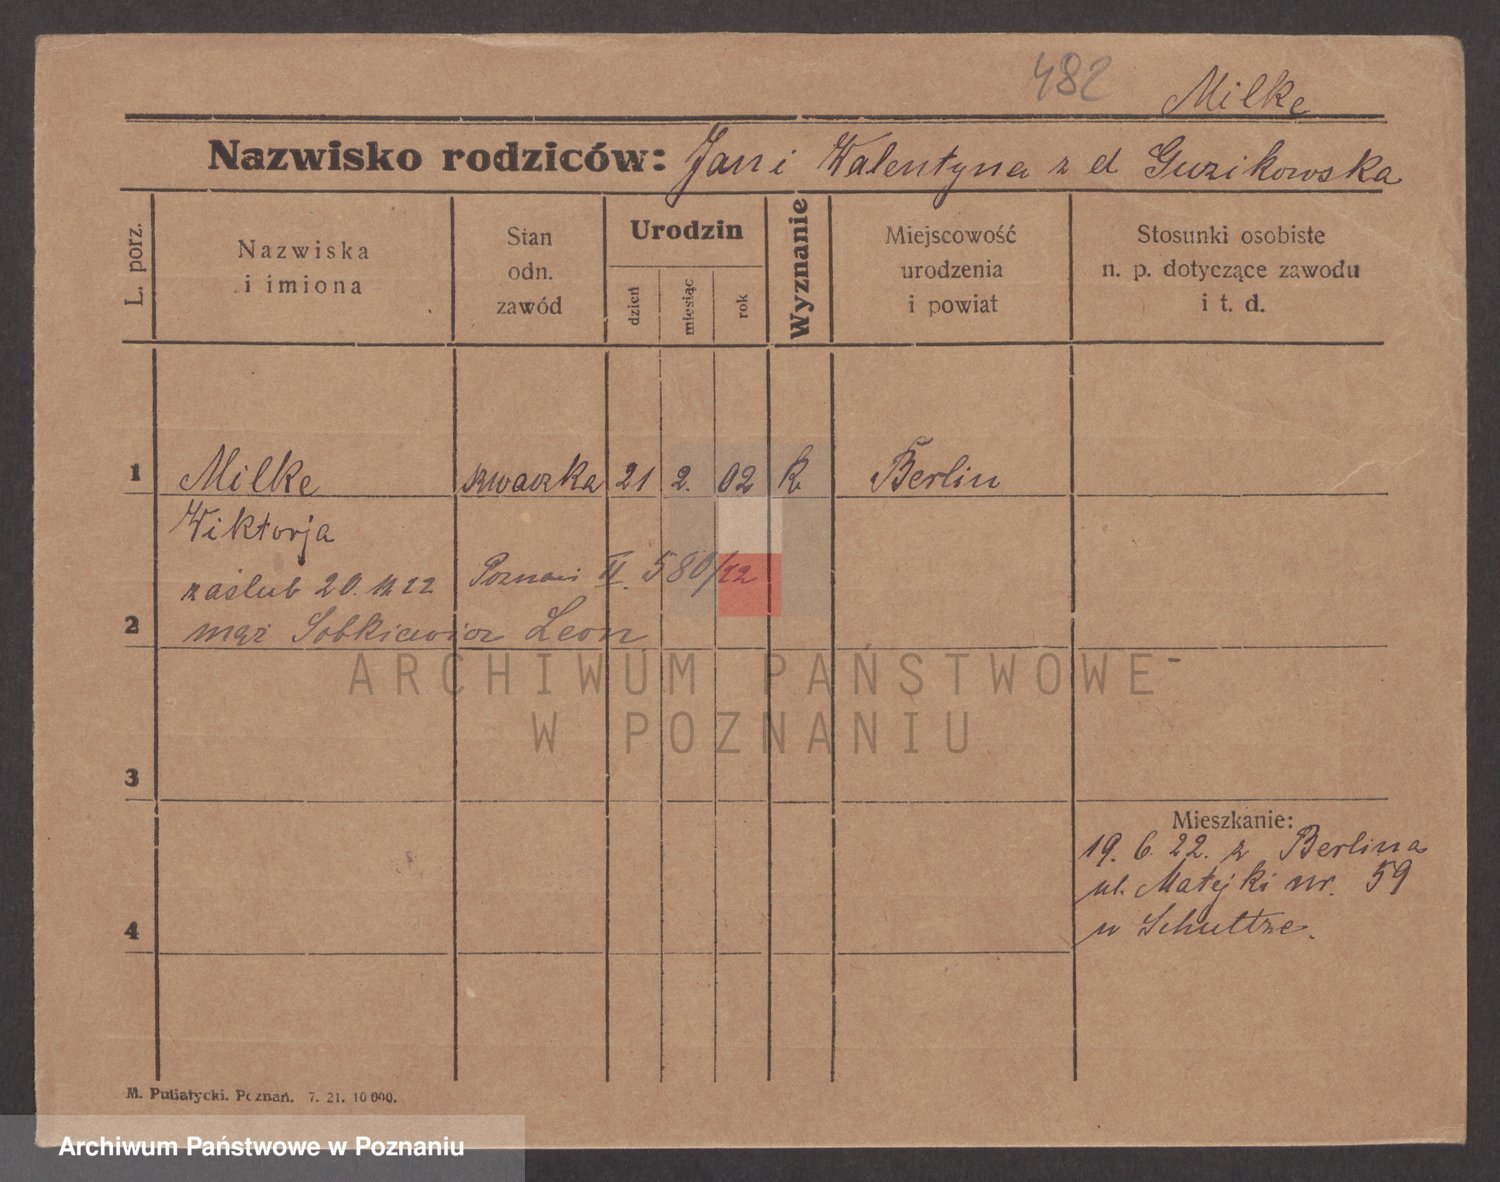 482
Milke
Nazwisko rodziców: Jan i Walentyna z d Guzikowska
L. porz.
Nazwiska
i imiona
Stan
odn.
zawód
Urodzin
dzień
miesiąc
rok
Wyznanie
Miejscowość
urodzenia
i powiat
Stosunki osobiste
n. p. dotyczące zawodu
i t. d.
1 Milke szwaczka 21 2. 02 k. Berlin
Wiktorja
zaślub 20. 12 22 Poznań II. 580/22
2 mąż Sobkiewicz Leon
ARCHIWUM PAŃSTWOWE
W POZNANIU
3
Mieszkanie:
19. 6 22. z Berlina
ul. Matejki nr. 59
4 u Schultze.
M. Putiatycki. Poznań. 7. 21. 10 000.
Archiwum Państwowe w Poznaniu